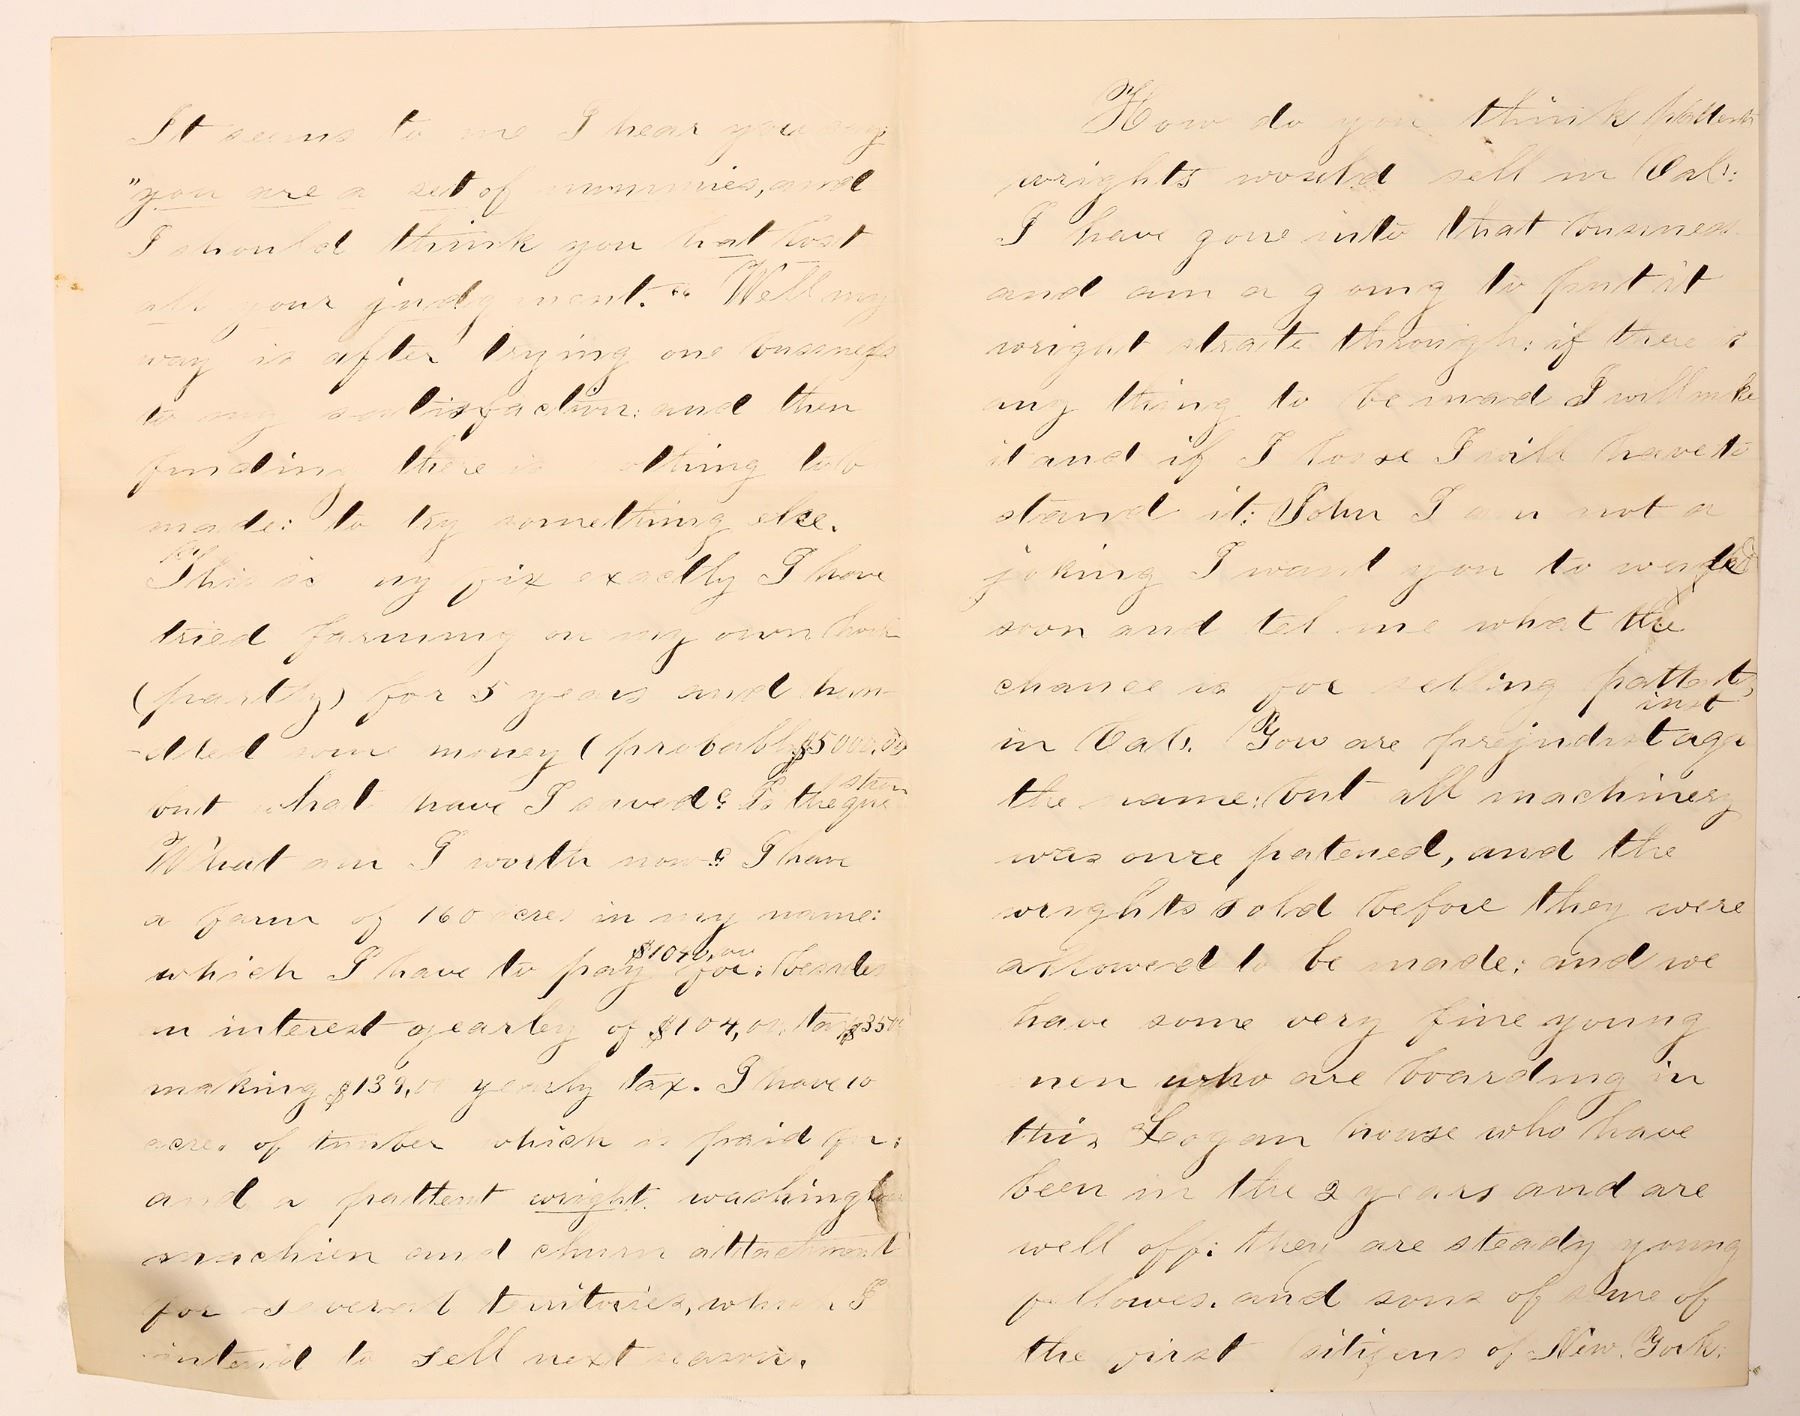 It seems to me I hear you say
"you are a set of mummies, and
I should think you hat lost
all your judgment." Well my
way is after trying one bussness
to my satisfaction: and then
finding there is othing to b
made: to try something else.
This is my fix exactly I have
tried farming on my own hook
(partly) for 5 years and han-
-dled some money (probably $5000,00
but what have I saved? Is the question
What am I worth now? I have
a farm of 160 acres in my name:
which I have to pay $1040,00 for: besides
an interest yearley of $104,00, tax $35,00
making $139,00 yearly tax. I have 10
acres of timber which is paid for:
and a pattent wright washing
machien and churn attachment
for several teritories, which I
intend to sell next season.
How do you think pattent
wrights would sell in Cal:
I have gone into that bussness
and am a going to put it
wright straite through: if there is
any thing to be mad I will make
it and if I loose I will have to
stand it: John I am not a
joking I want you to
soon and tel me what the
chance is for selling pattents
in Cal. You are prejudist against
the name: but all machinery
was once patened, and the
wrights sold before they were
allowed to be made: and we
have some very fine young
men who are boarding in
this Logan house who have
been in the 2 years and are
well off: they are steady young
fellowes. and sons of some of
the first sitizens of New. York: